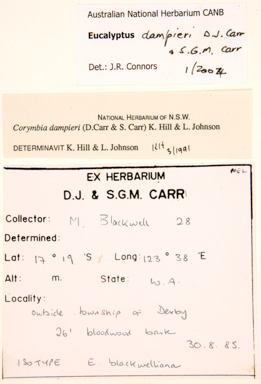 Australian National Herbarium CANB
Eucalyptus dampieri D.J. Carr
& S.G.M. Carr
Det.: J.R. Connors 1/2002
NATIONAL HERBARIUM OF N.S.W.
Corymbia dampieri (D.Carr & S. Carr) K. Hill & L. Johnson
DETERMINAVIT K. Hill & L. Johnson 1991
MEL
EX HERBARIUM
D.J. & S.G.M. CARR
Collector: M. Blackwell 28
Determined:
Lat: 17 ° 19 'S Long: 123 ° 38 'E
Alt: m. State: W.A.
Locality:
outside township of Derby
26' bloodwood bark
30.8.85.
ISOTYPE E. blackwelliana